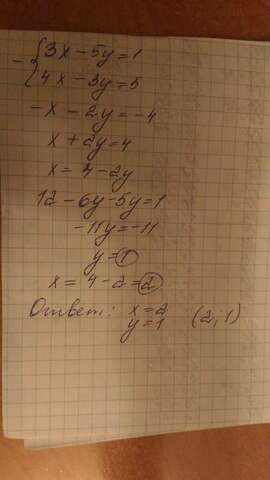 - { 3x - 5y = 1
4x - 3y = 5
-x - 2y = -4
x + 2y = 4
x = 4 - 2y
12 - 6y - 5y = 1
-11y = -11
y = 1
x = 4 - 2 = 2
Ответ: x = 2 (2, 1)
y = 1